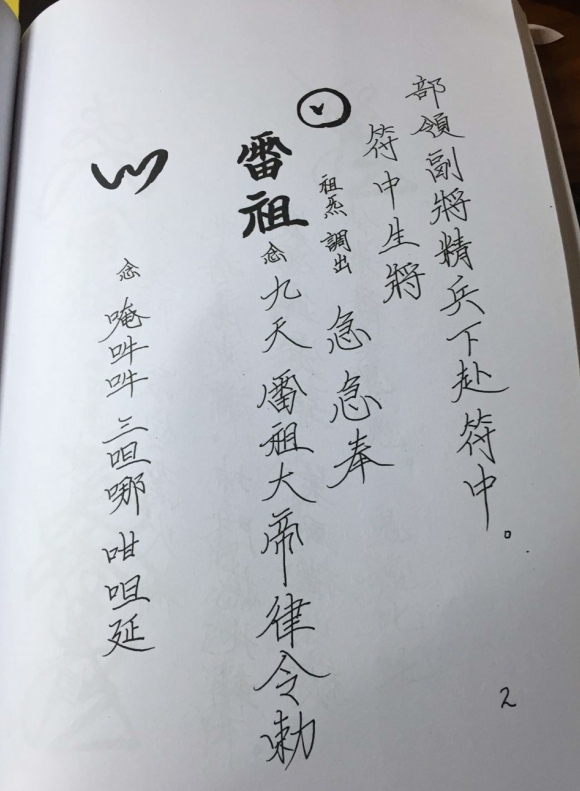 部領副將精兵下赴符中。
符中生將
祖炁調出 急急奉
雷祖 念 九天雷祖大帝律令勅
念 唵吽吽 三呾哪 呾呾延
2